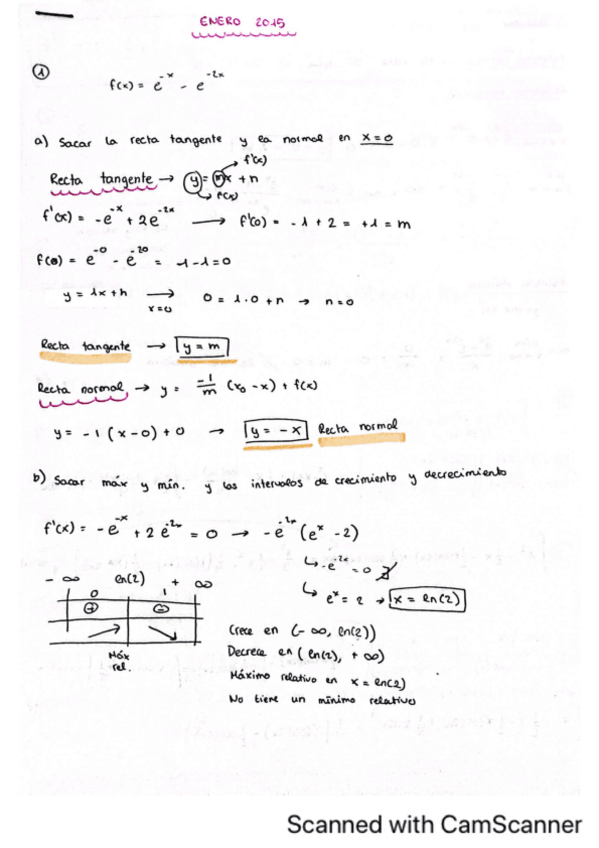 ENERO 2015
1
f(x) = e^-x - e^-2x
a) Sacar la recta tangente y la normal en x=0
f'(x)
Recta tangente → y = mx + n
f(x)
f'(x) = -e^-x + 2e^-2x → f'(0) = -1 + 2 = +1 = m
f(0) = e^-0 - e^-20 = 1-1=0
y = 1x+n → x=0 0 = 1·0 +n → n=0
Recta tangente → y = m
Recta normal → y = -1/m (x0 - x) + f(x)
y = -1 (x-0) + 0 → y = -x Recta normal
b) Sacar máx y mín. y los intervalos de crecimiento y decrecimiento
f'(x) = -e^-x + 2e^-2x = 0 → -e^-2x (e^x - 2)
-e^-2x = 0 ∄
e^x = 2 → x = ln(2)
-∞ ln(2) +∞
0 1
+ -
Máx
rel.
Crece en (-∞, ln(2))
Decrece en (ln(2), +∞)
Máximo relativo en x = ln(2)
No tiene un mínimo relativo
Scanned with CamScanner